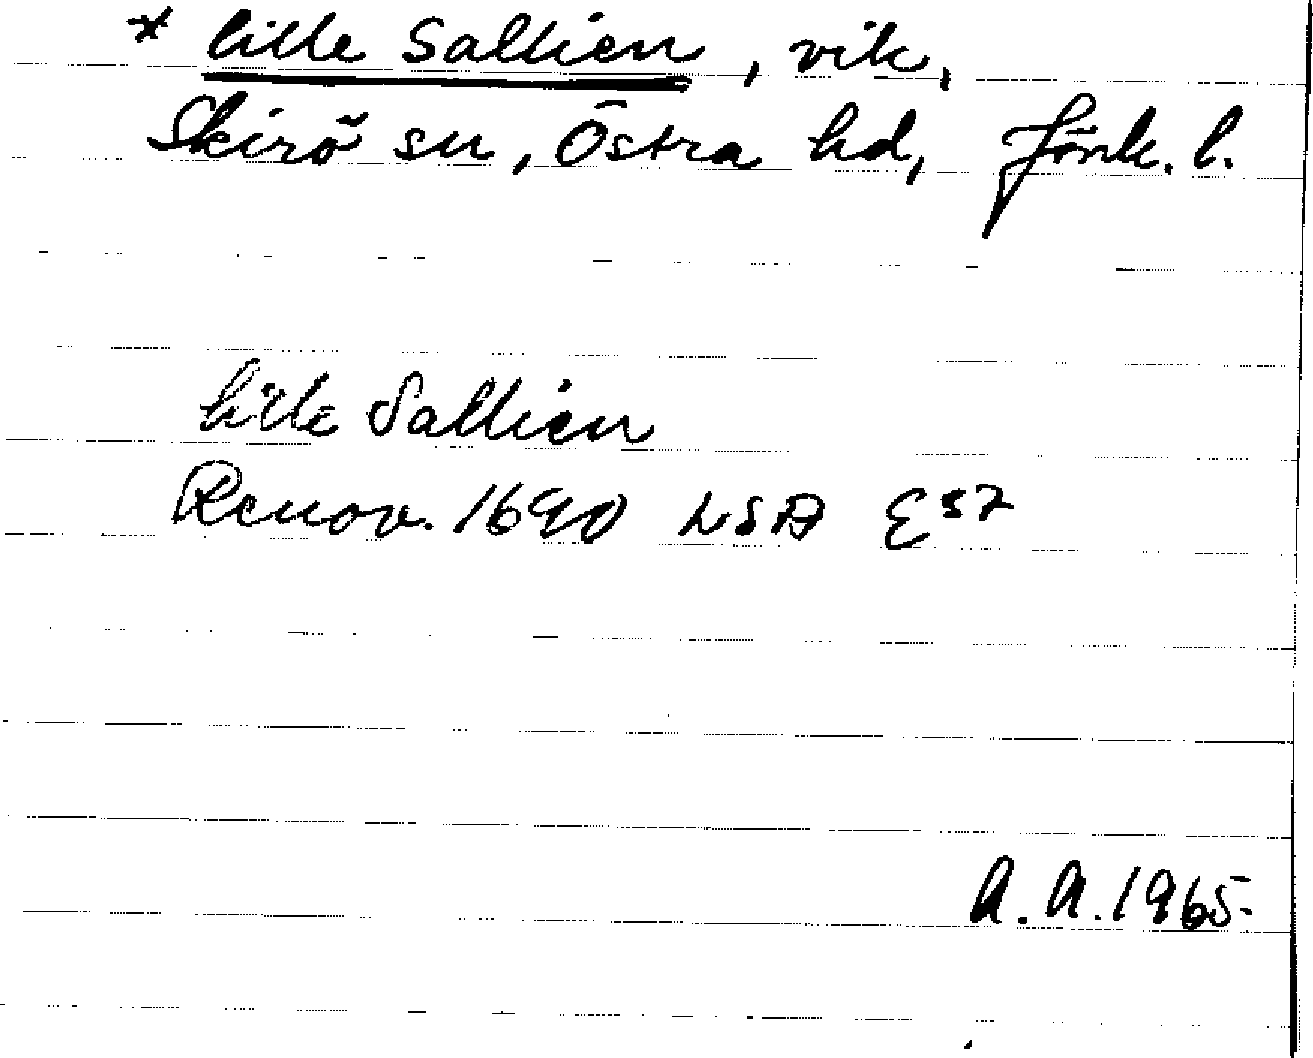 * lille Sallien, vik,
Skirö sn, Östra hd, Jönk. l.
lille Sallien
Renov. 1690 LSA E57
A.A. 1965